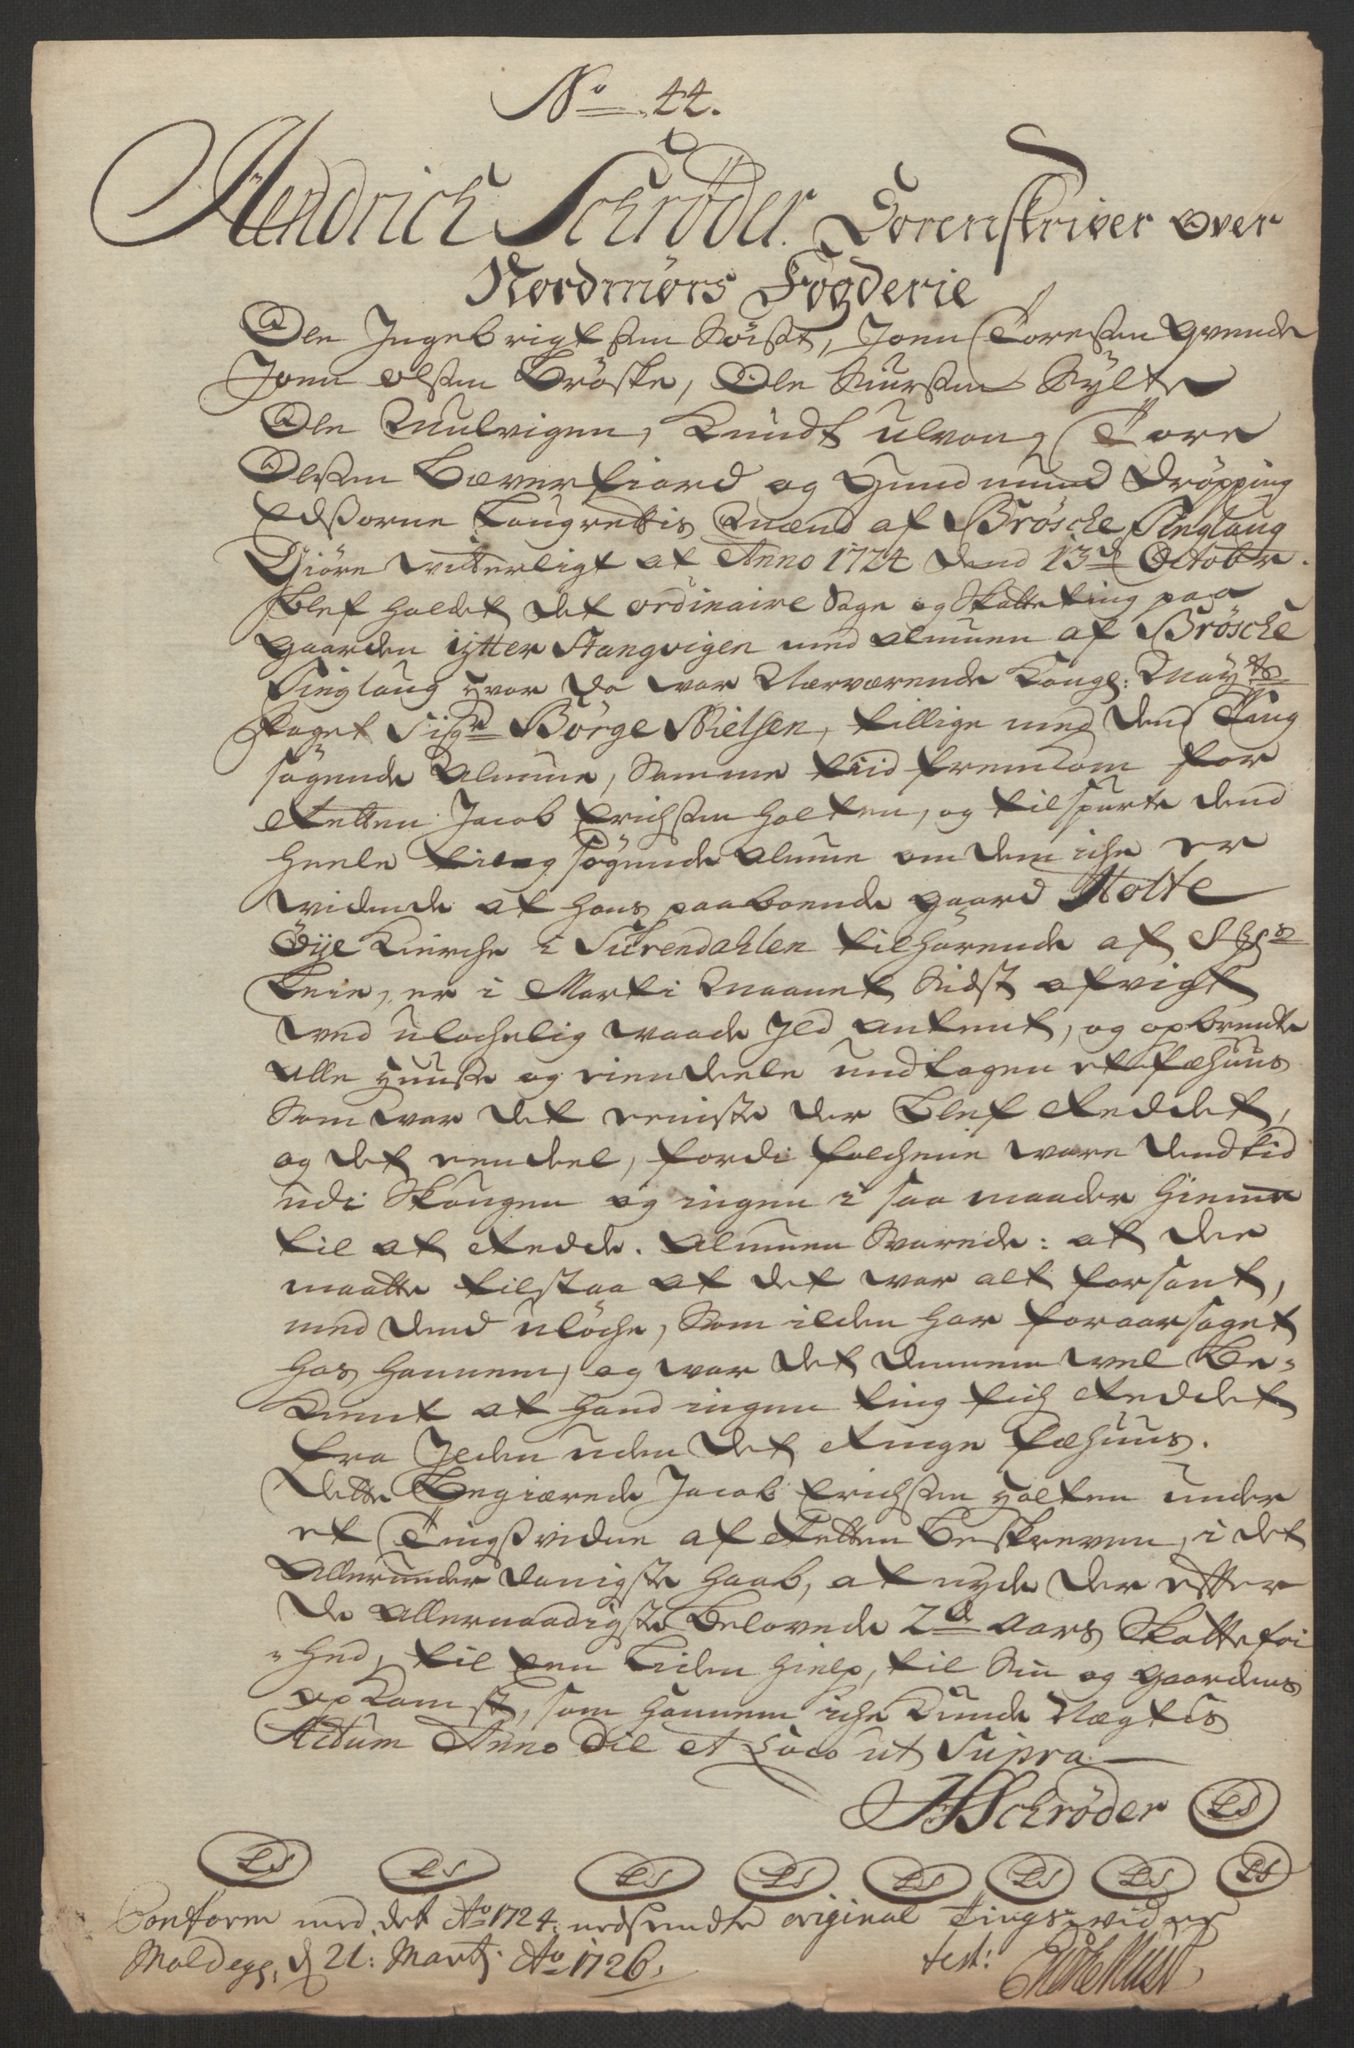 No 44.
Hendrich Schrøder. Sorenskriver over
Nordmørs Fogderie
Ole Ingebrigtssen Søist, Joen Toressen Qvende
Joen olssen Brøske, Ole Siurssen Sylte
Ole Mulvigen, Knudt ulvong Tore
Olssen Bæverfiord og Gundmund Drøpping
Edsorne Laugrettis Mænd af Brøsche Tinglaug
Giøre witterligt at Anno 1724 dend 13de Octobr.
blef holdet det ordinaire Sage og Skatteting paa
gaarden ÿtter Stangvigen med almuen af Brøsche
Tinglaug hvor da war Nærværende Kongl: Mayts
foget Sigr Børge Nielsen, tillige med den Ting
søgende Almue, Samme tiid fremkom for
Retten Jacob Erichssen Holten, og tilspurte dend
heele ting søgende Almue om dem iche er
widende at hans paaboende gaard Holte
Öÿe Kirche i Surendahlen tilhørende af
Leie, er i Marti Maanet Sidst afvigt
wed uløchelig waade Ild antent, og opbrendte
Alle Huusse og eiendeele undtagen et fæhuus
Som war det eeniste der blef Reddet,
og det eendeel, fordi folchene ware dend tid
udi Skougen og ingen i saa maader hiemme
til at Redde. Almuen Svarede: at die
maatte tilstaa at det war alt forsant,
med dend uløche, Som ilden har foraarsaget
hos hannem, og war det dennem wel be-
kient at hand ingen ting fich Reddet
fra Ilden uden det Ringe fæhuus.
Dette begiærede Jacob Erichssen Holten under
et Tingsvidne af Retten beskreven, i det
Allerunderdanigste haab, at nyde der effter
de Allernaadigste belovede 2de Aars Skattefri
-hed, til een liden hielp, til Sin og gaardens
opkomst, som hannem iche kunde Nægtis
Actum Anno Die et Loco ut Supra
HSchrøder LS
LS LS LS LS LS LS LS LS
Conform med det Ao 1724 nedsendte original Tings-vidne
Moldeg, d 21: Martj Ao 1726,
test: